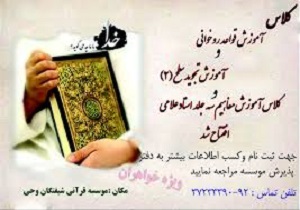 کلاس
آموزش قواعد روخوانی
و
آموزش تجوید سطح (۲)
و
کلاس آموزش مفاهیم سه جلد استاد غلامی
افتتاح شد
جهت ثبت نام و کسب اطلاعات بیشتر به دفتر
پذیرش موسسه مراجعه نمایید
ویژه خواهران
تلفن تماس : ۹۲-۳۷۲۲۳۲۹۰
مکان : موسسه قرآنی شیفتگان وحی